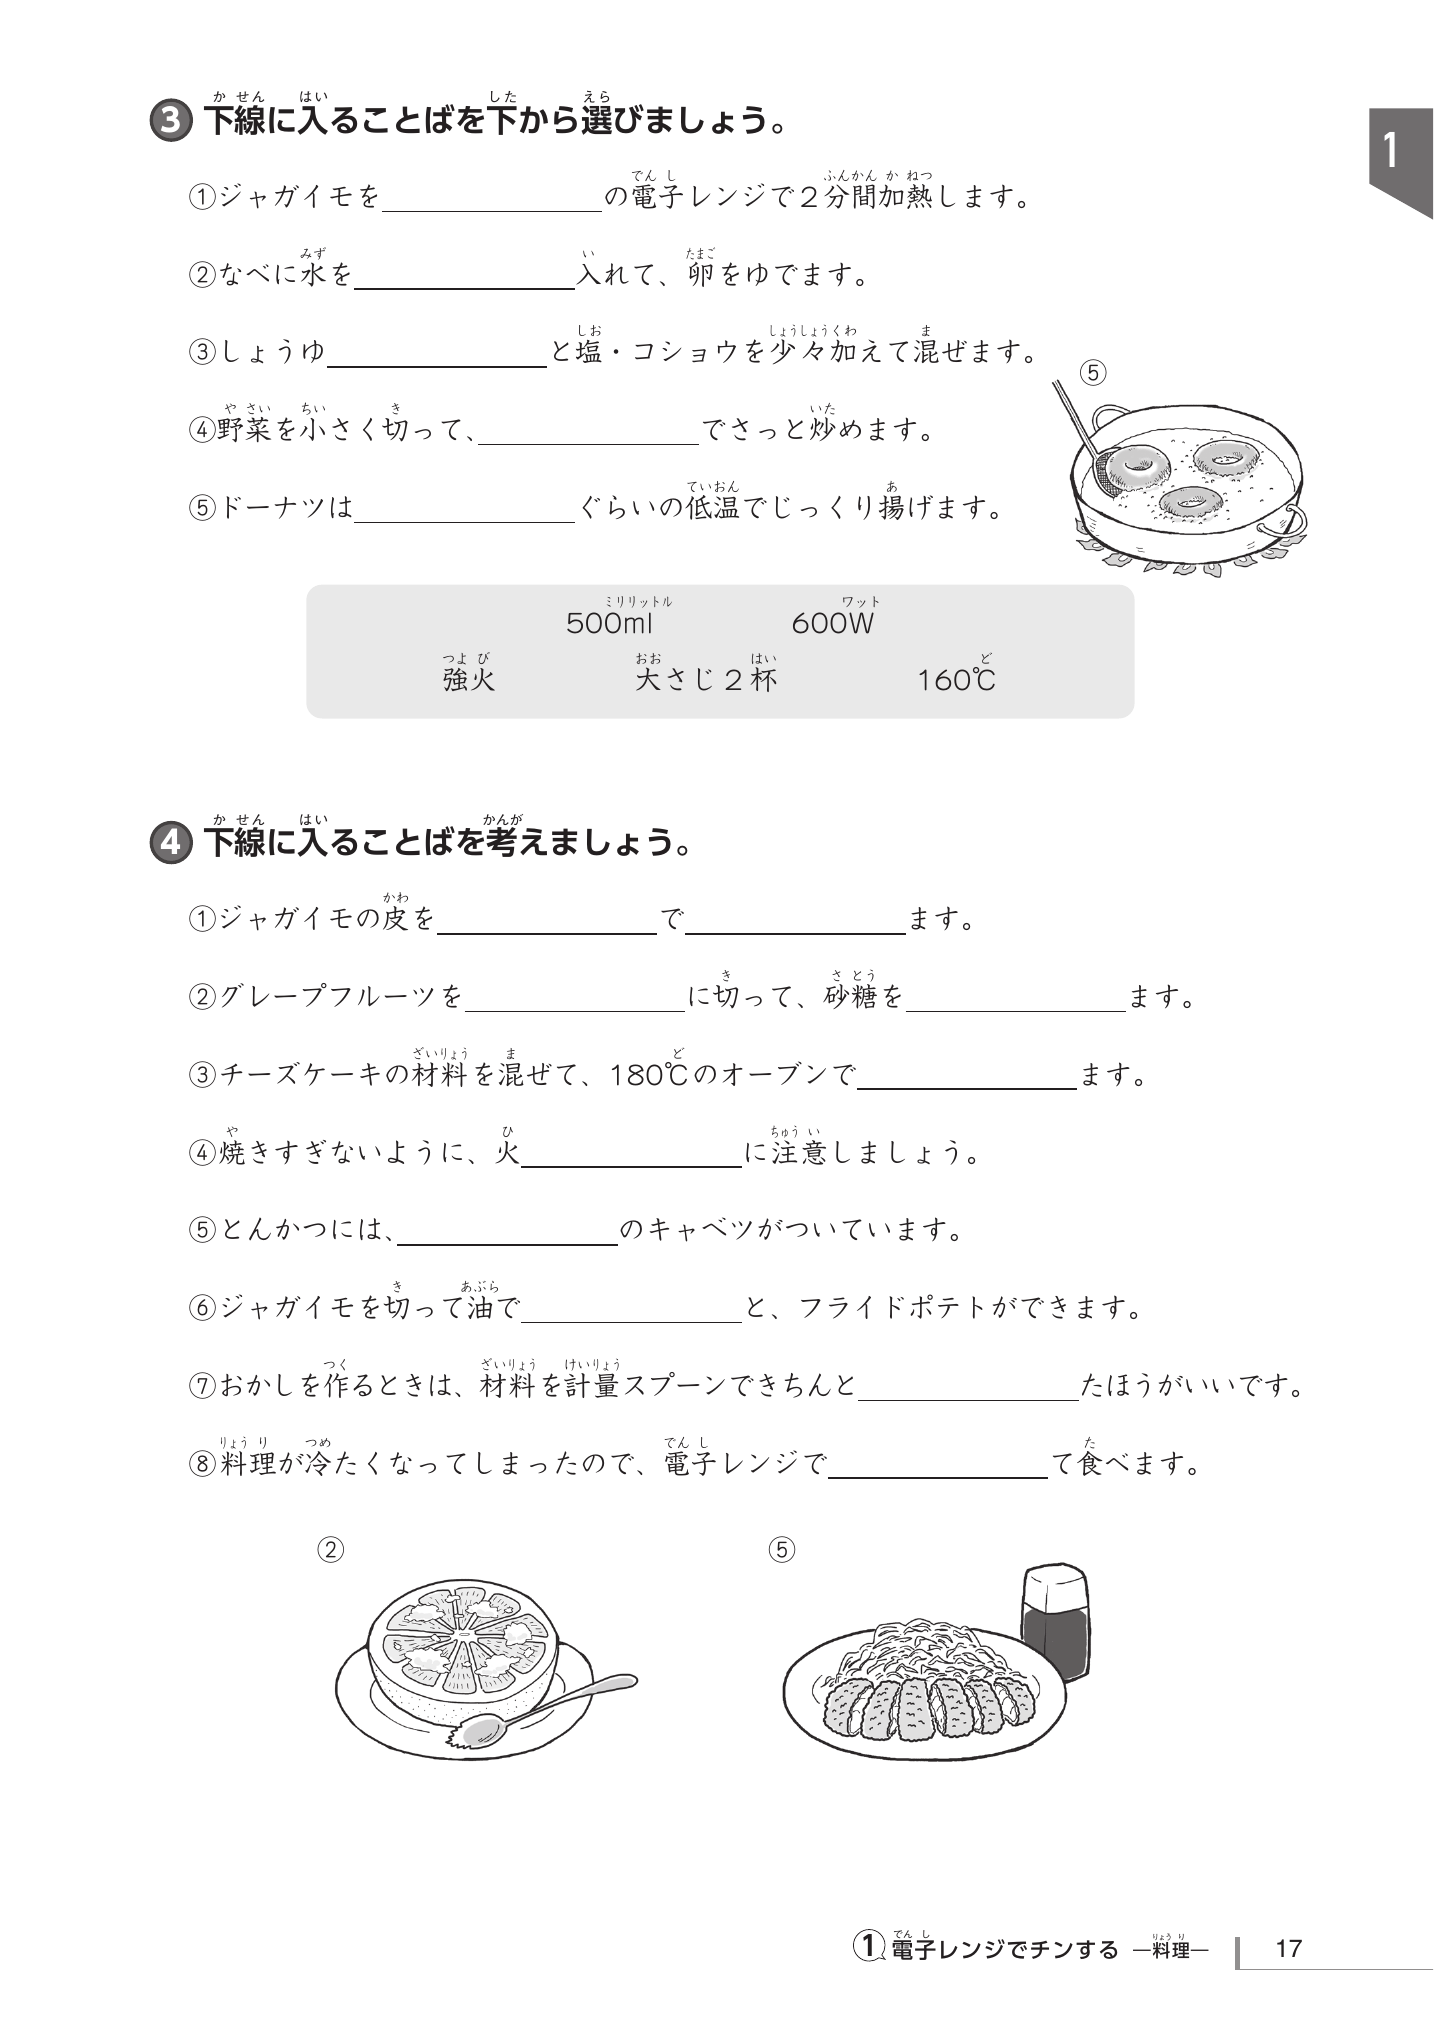 3 下線に入ることばを下から選びましょう。
①ジャガイモを＿＿＿＿＿＿の電子レンジで２分間加熱します。
②なべに水を＿＿＿＿＿＿入れて、卵をゆでます。
③しょうゆ＿＿＿＿＿＿と塩・コショウを少々加えて混ぜます。
④野菜を小さく切って、＿＿＿＿＿＿でさっと炒めます。
⑤ドーナツは＿＿＿＿＿＿ぐらいの低温でじっくり揚げます。
⑤
500ml 600W
強火 大さじ２杯 160℃
4 下線に入ることばを考えましょう。
①ジャガイモの皮を＿＿＿＿＿＿で＿＿＿＿＿＿ます。
②グレープフルーツを＿＿＿＿＿＿に切って、砂糖を＿＿＿＿＿＿ます。
③チーズケーキの材料を混ぜて、180℃のオーブンで＿＿＿＿＿＿ます。
④焼きすぎないように、火＿＿＿＿＿＿に注意しましょう。
⑤とんかつには、＿＿＿＿＿＿のキャベツがついています。
⑥ジャガイモを切って油で＿＿＿＿＿＿と、フライドポテトができます。
⑦おかしを作るときは、材料を計量スプーンできちんと＿＿＿＿＿＿たほうがいいです。
⑧料理が冷たくなってしまったので、電子レンジで＿＿＿＿＿＿て食べます。
② ⑤
1 電子レンジでチンする ―料理― 17
1